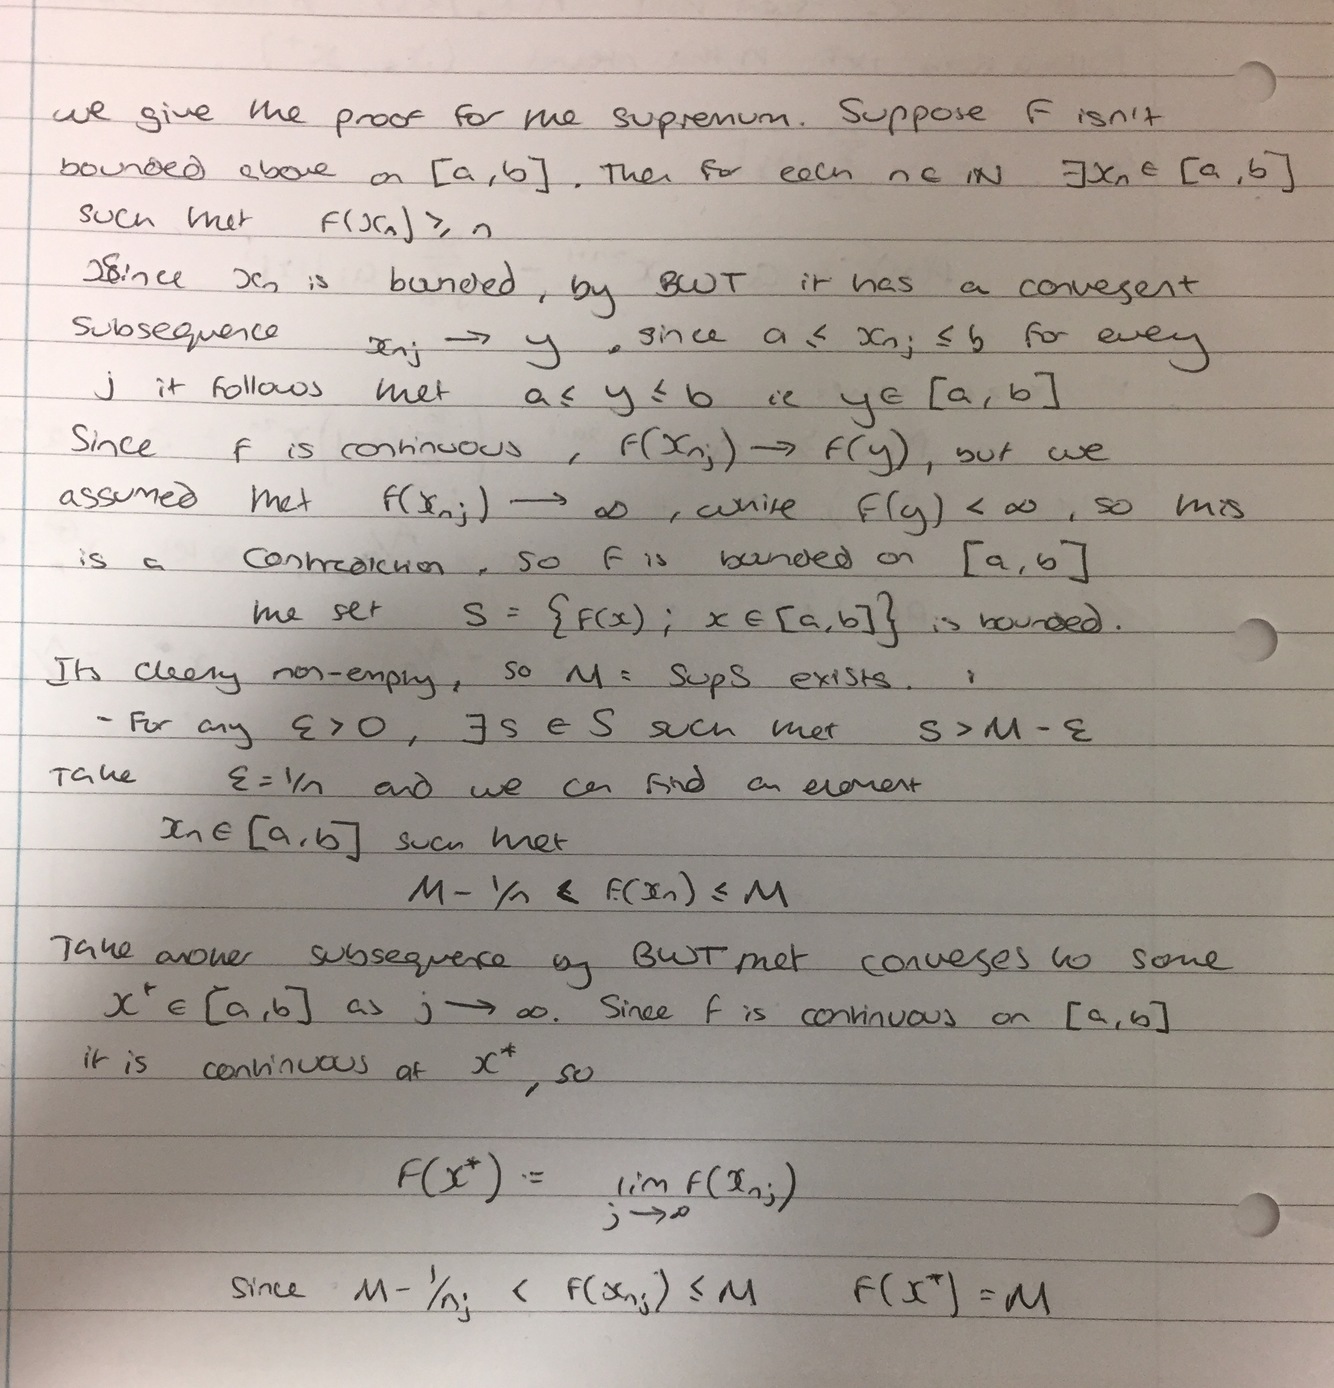 we give the proof for the supremum. Suppose f isn't
bounded above on [a,b]. Then for each n ∈ ℕ ∃xₙ ∈ [a,b]
such that f(xₙ) ≥ n
Since xₙ is bounded, by BWT it has a convegent
subsequence xₙⱼ → y. since a ≤ xₙⱼ ≤ b for every
j it follows that a ≤ y ≤ b ie y ∈ [a,b]
Since f is continuous, f(xₙⱼ) → f(y), but we
assumed that f(xₙⱼ) → ∞, while f(y) < ∞, so this
is a contradiction. so f is bounded on [a,b]
the set S = {f(x); x ∈ [a,b]} is bounded.
Its clearly non-empty, so M = Sup S exists.
- For any ε > 0, ∃ s ∈ S such that s > M - ε
Take ε = 1/n and we can find an element
xₙ ∈ [a,b] such that
M - 1/n < f(xₙ) ≤ M
Take another subsequence by BWT that conveges to some
x* ∈ [a,b] as j → ∞. Since f is continuous on [a,b]
it is continuous at x*, so
f(x*) = lim f(xₙⱼ)
j → ∞
Since M - 1/nⱼ < f(xₙⱼ) ≤ M f(x*) = M